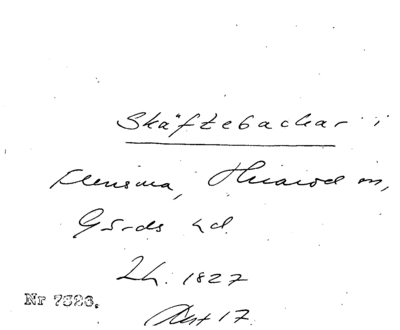 Skäftebackar i
Flensma, Hviarod m,
Gärds hd.
Lh. 1827
Akt 17.
Nr 7323.